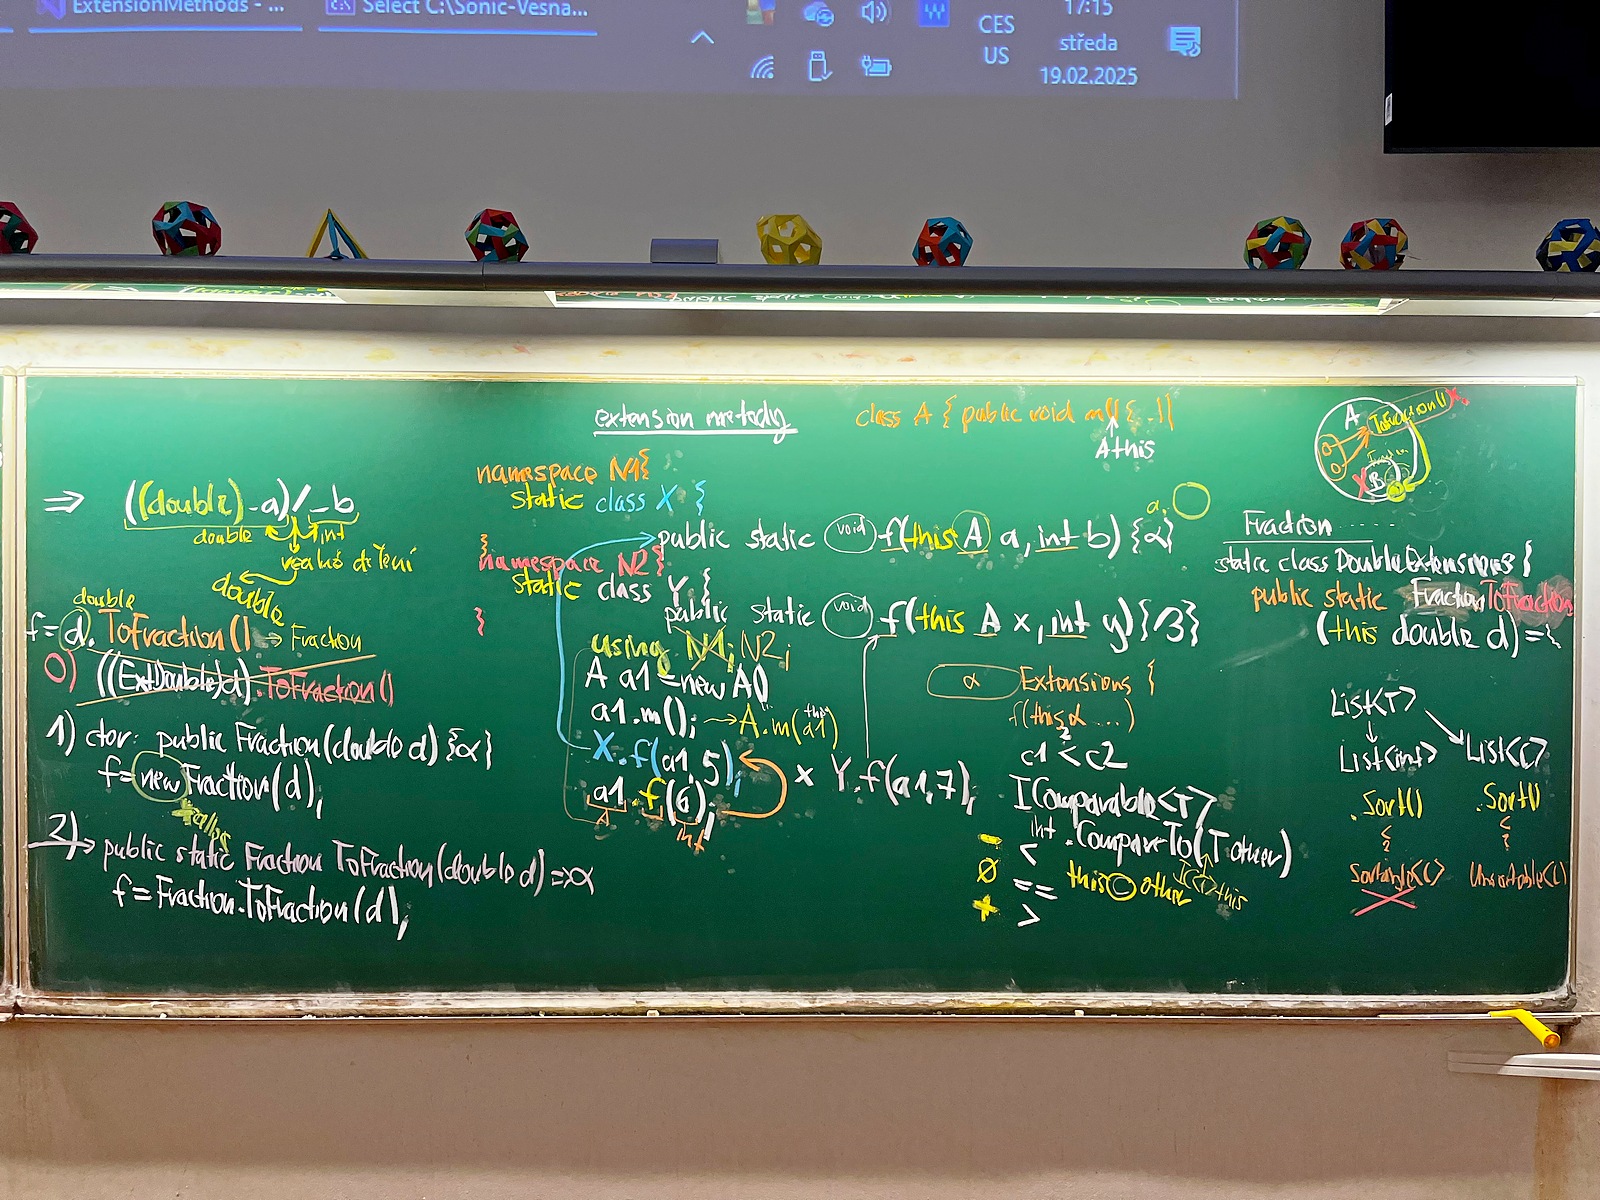 ExtensionMethods - ...
Select C:\Sonic-Vesna...
CES
US
17:15
středa
19.02.2025
extension metody
class A { public void m() { .. }
A this
⇒ ((double) _a) / _b
double
int
reálné dělení
double
double
f = d. ToFraction() → Fraction
0) ((ExtDouble)d).ToFraction()
1) ctor: public Fraction(double d) {α}
f = new Fraction(d);
2) → public static Fraction ToFraction(double d) => α
f = Fraction.ToFraction(d);
namespace N1 {
static class X {
public static void f(this A a, int b) {α}
a.
}
namespace N2 {
static class Y {
public static void f(this A x, int y) {β}
}
using N1; N2;
A a1 = new A()
a1.m(); → A.m(a1)
this
X.f(a1, 5);
× Y.f(a1, 7);
a1.f(6);
A
int
α Extensions {
f(this α ...)
?
c1 < c2
IComparable<T>
int .CompareTo(T other)
- <
0 ==
+ >
this ○ other
this
A
ToFraction()
B
Fraction .....
static class DoubleExtensions {
public static Fraction ToFraction
(this double d) => {
List<T>
List<int>
List<C>
.Sort()
.Sort()
<
?
<
?
Sortable<C>
Unsortable<C>